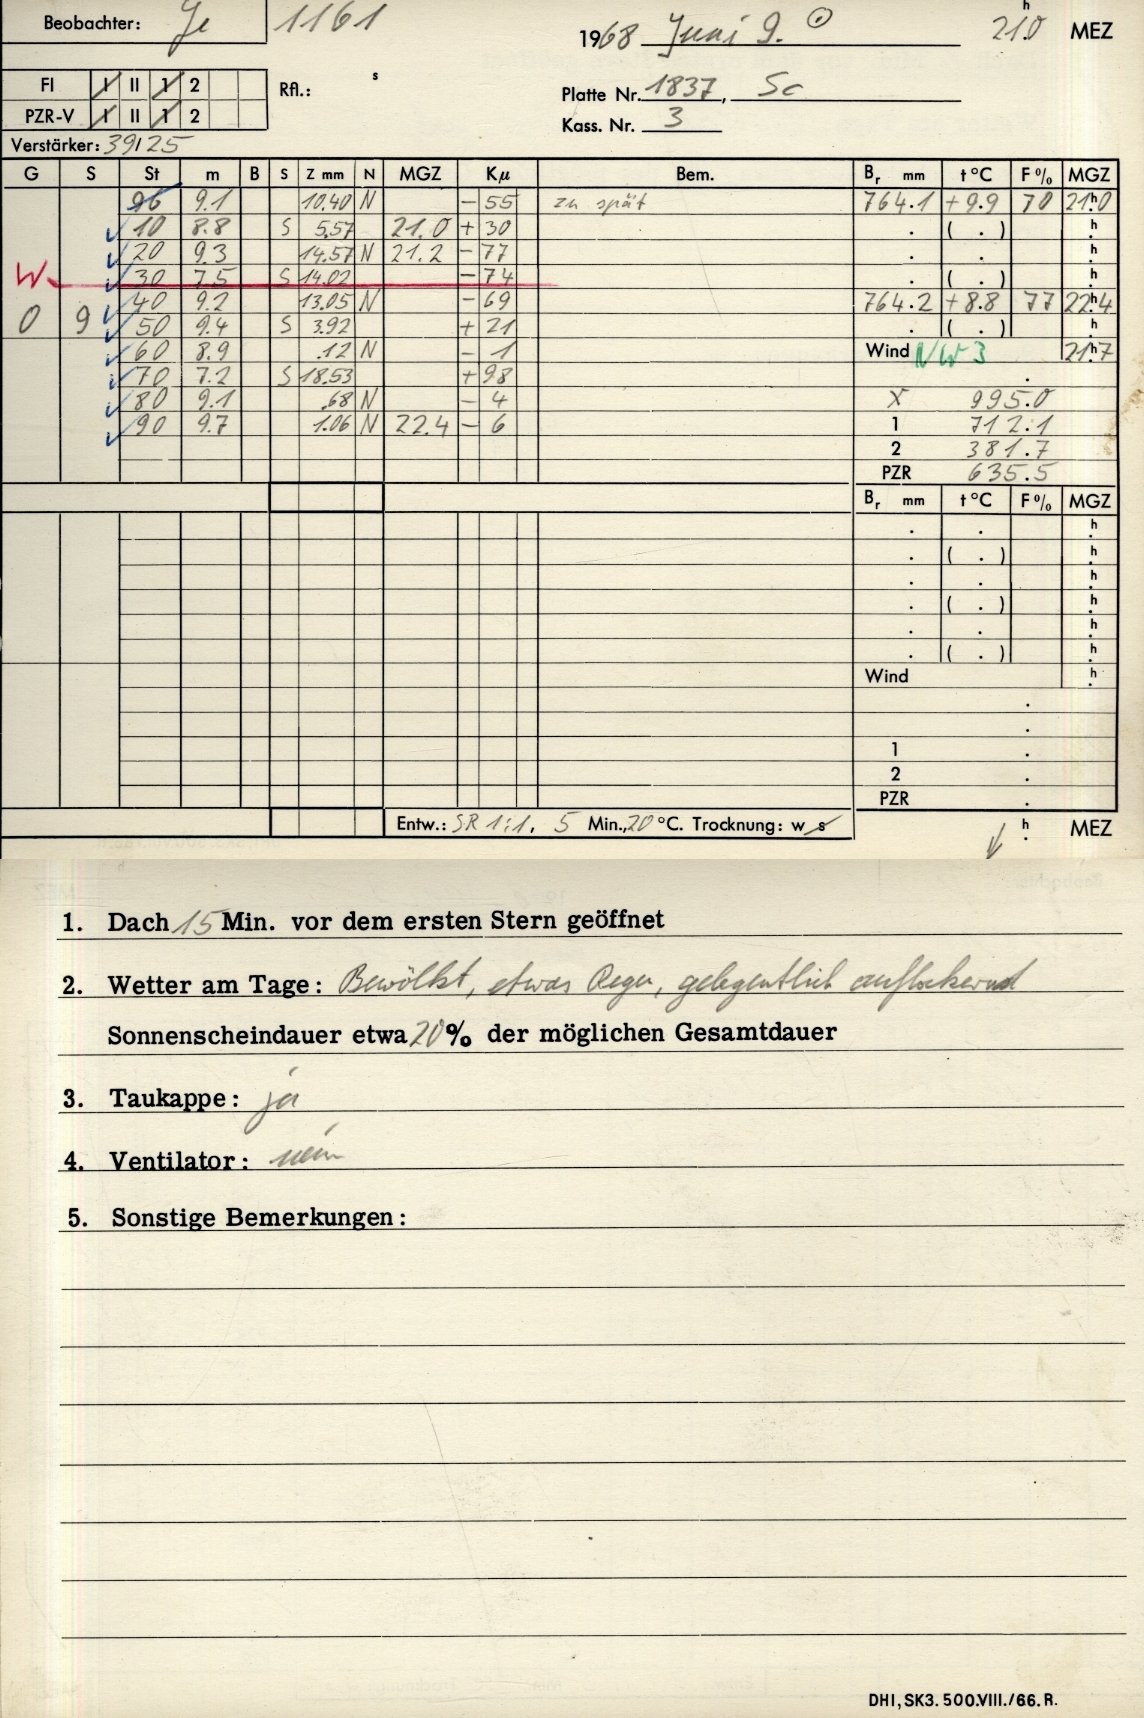 Beobachter: Je 1161 1968 Juni 9. ⊙ 21.0 h MEZ
FI I II 1 2 Rfl.: s Platte Nr. 1837, Sc
PZR-V I II 1 2 Kass. Nr. 3
Verstärker: 39/25
G S St m B S Z mm N MGZ Kμ Bem. Br mm t °C F % MGZ
96 9.1 10.40 N - 55 zu spät 764.1 + 9.9 70 21h0
10 8.8 S 5.57 21.0 + 30 . ( . ) h.
20 9.3 14.57 N 21.2 - 77 . . h.
W 30 7.5 S 14.02 - 74 . ( . ) h.
40 9.2 13.05 N - 69 764.2 + 8.8 77 22h4
0 9 50 9.4 S 3.92 + 21 . ( . ) h.
60 8.9 .12 N - 1 Wind NW 3 21h7
70 7.2 S 18.53 + 98 .
80 9.1 .68 N - 4 X 995.0
90 9.7 1.06 N 22.4 - 6 1 712.1
2 381.7
PZR 635.5
Br mm t °C F % MGZ
. . h.
. ( . ) h.
. . h.
. ( . ) h.
. . h.
. ( . ) h.
Wind h.
.
.
1 .
2 .
PZR .
Entw.: SR 1:1, 5 Min., 20 °C. Trocknung: w s h. MEZ
1. Dach 15 Min. vor dem ersten Stern geöffnet
2. Wetter am Tage: Bewölkt, etwas Regen, gelegentlich auflockernd
Sonnenscheindauer etwa 20 % der möglichen Gesamtdauer
3. Taukappe: ja
4. Ventilator: nein
5. Sonstige Bemerkungen:
DHI, SK3. 500.VIII./66. R.